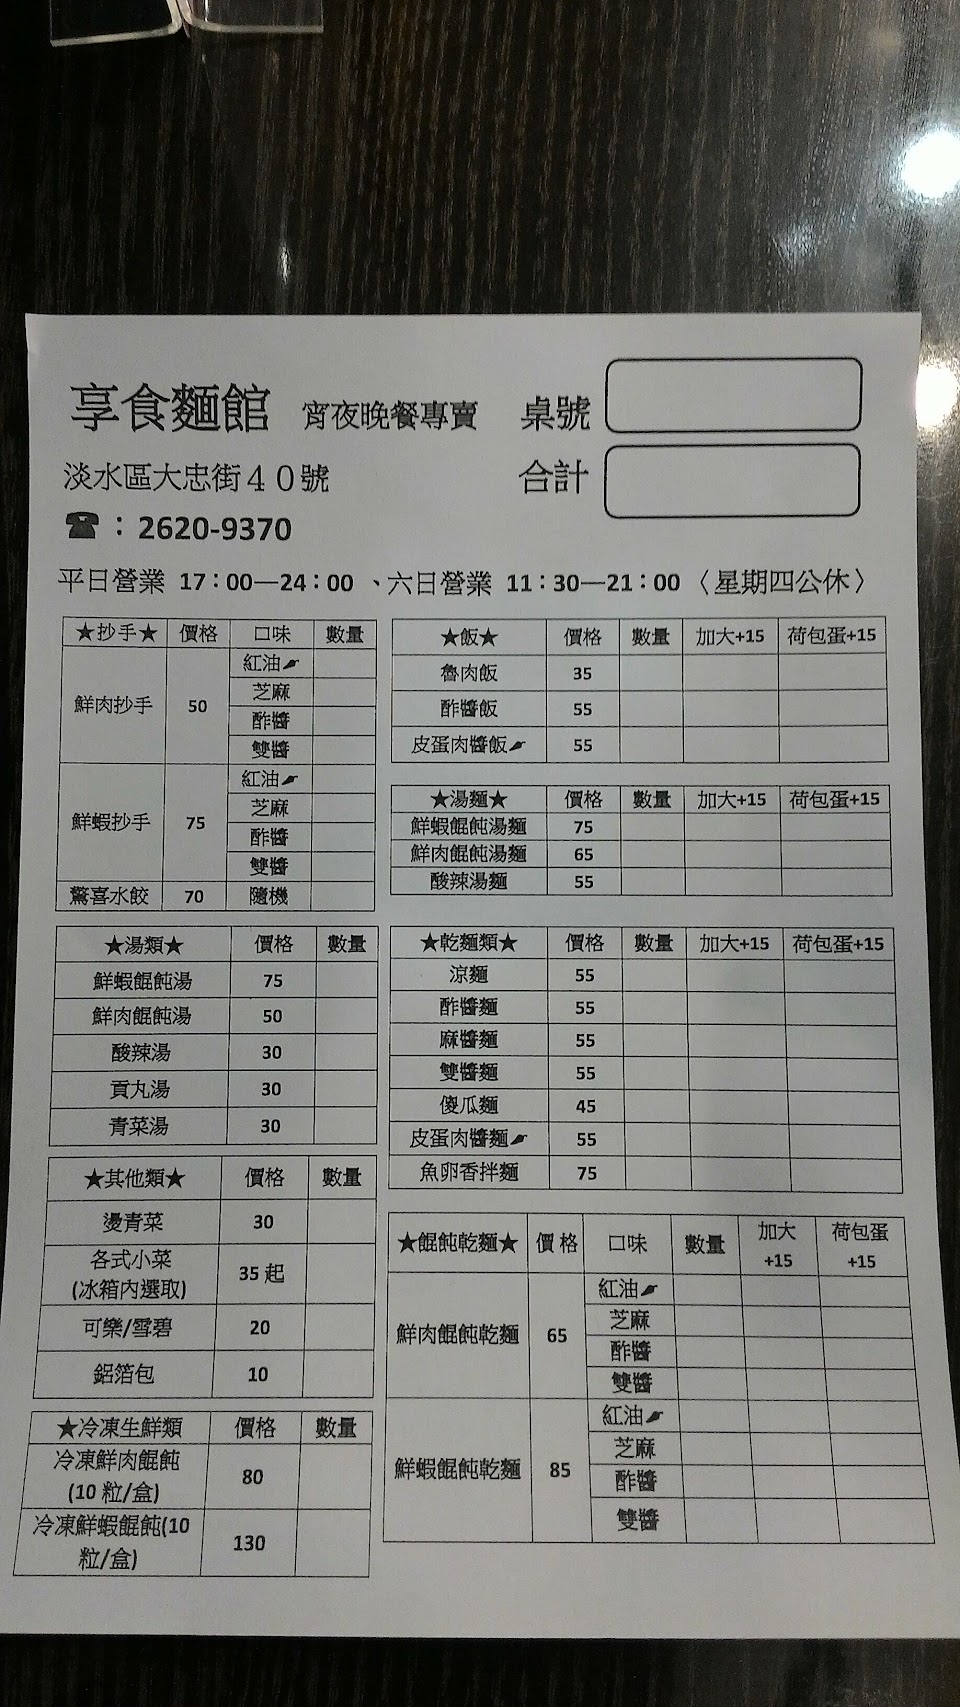 享食麵館 宵夜晚餐專賣 桌號
淡水區大忠街40號 合計
☎：2620-9370
平日營業 17：00—24：00 、六日營業 11：30—21：00〈星期四公休〉
★抄手★ 價格 口味 數量
鮮肉抄手 50 紅油
芝麻
酢醬
雙醬
鮮蝦抄手 75 紅油
芝麻
酢醬
雙醬
驚喜水餃 70 隨機
★湯類★ 價格 數量
鮮蝦餛飩湯 75
鮮肉餛飩湯 50
酸辣湯 30
貢丸湯 30
青菜湯 30
★其他類★ 價格 數量
燙青菜 30
各式小菜
(冰箱內選取) 35 起
可樂/雪碧 20
鋁箔包 10
★冷凍生鮮類 價格 數量
冷凍鮮肉餛飩
(10 粒/盒) 80
冷凍鮮蝦餛飩(10
粒/盒) 130
★飯★ 價格 數量 加大+15 荷包蛋+15
魯肉飯 35
酢醬飯 55
皮蛋肉醬飯 55
★湯麵★ 價格 數量 加大+15 荷包蛋+15
鮮蝦餛飩湯麵 75
鮮肉餛飩湯麵 65
酸辣湯麵 55
★乾麵類★ 價格 數量 加大+15 荷包蛋+15
涼麵 55
酢醬麵 55
麻醬麵 55
雙醬麵 55
傻瓜麵 45
皮蛋肉醬麵 55
魚卵香拌麵 75
★餛飩乾麵★ 價格 口味 數量 加大 +15 荷包蛋 +15
鮮肉餛飩乾麵 65 紅油
芝麻
酢醬
雙醬
鮮蝦餛飩乾麵 85 紅油
芝麻
酢醬
雙醬